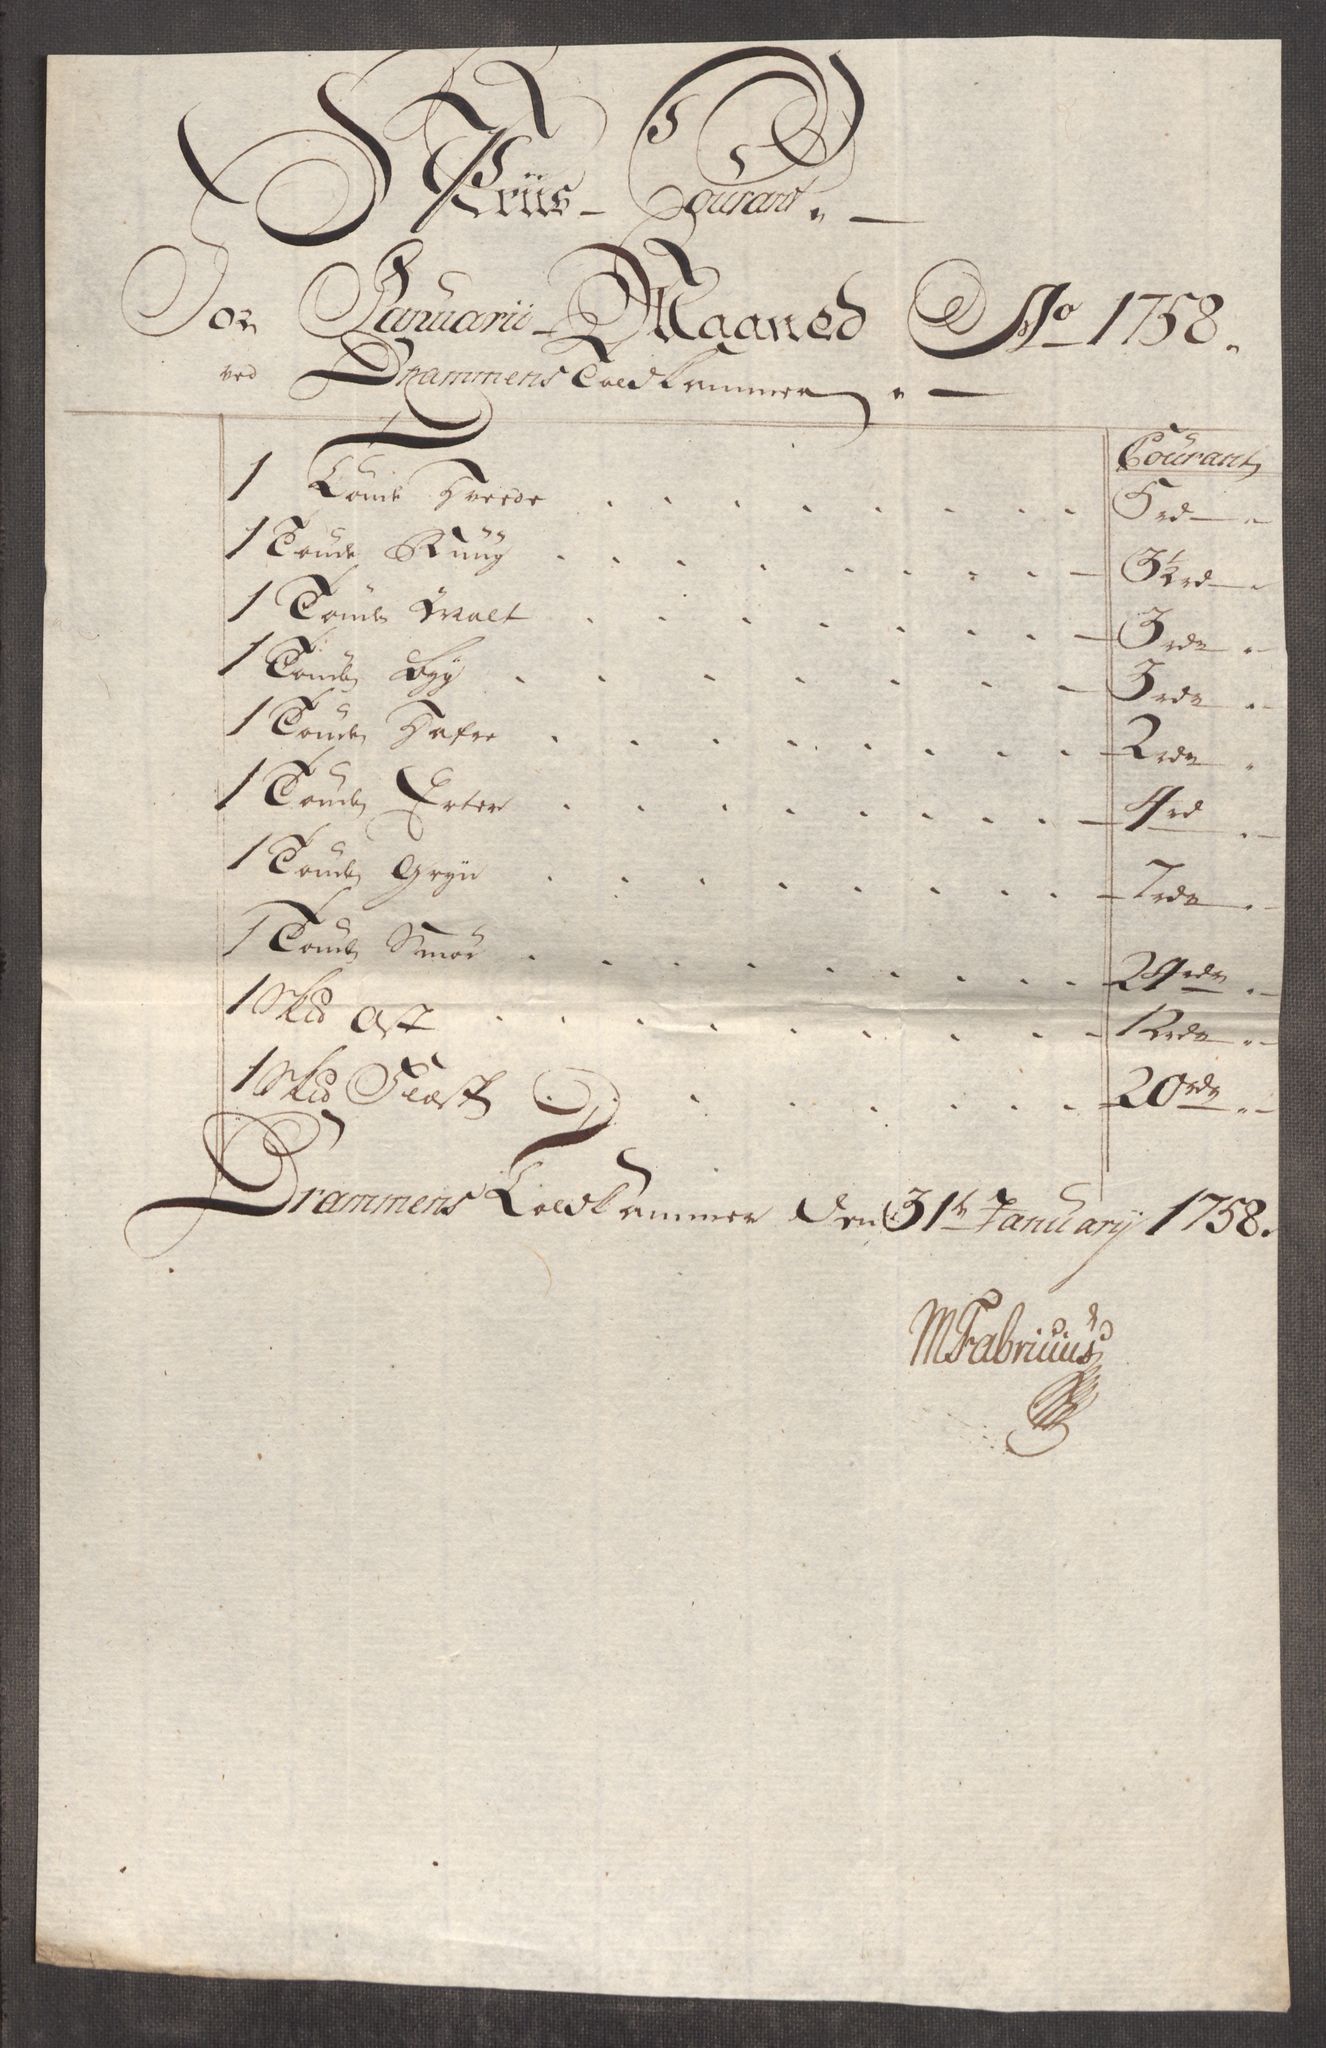 Priis-Courant.
For Januarii Maaned Ao 1758.
ved Drammens Toldkammer.
Courant
1 Tønde Hvede 5 rd
1 Tønde Rüüg 3½ rd
1 Tønde Malt 3 rdr
1 Tønde Byg 3 rdr
1 Tønde Hafre 2 rdr
1 Tønde Erter 4 rd
1 Tønde Gryn 7 rdr
1 Tønde Smør 24 rdr
1 Skd Ost 12 rdr
1 Skd Flæsk 20 rdr
Drammens Toldkammer den 31te Januarij 1758.
MFabricius